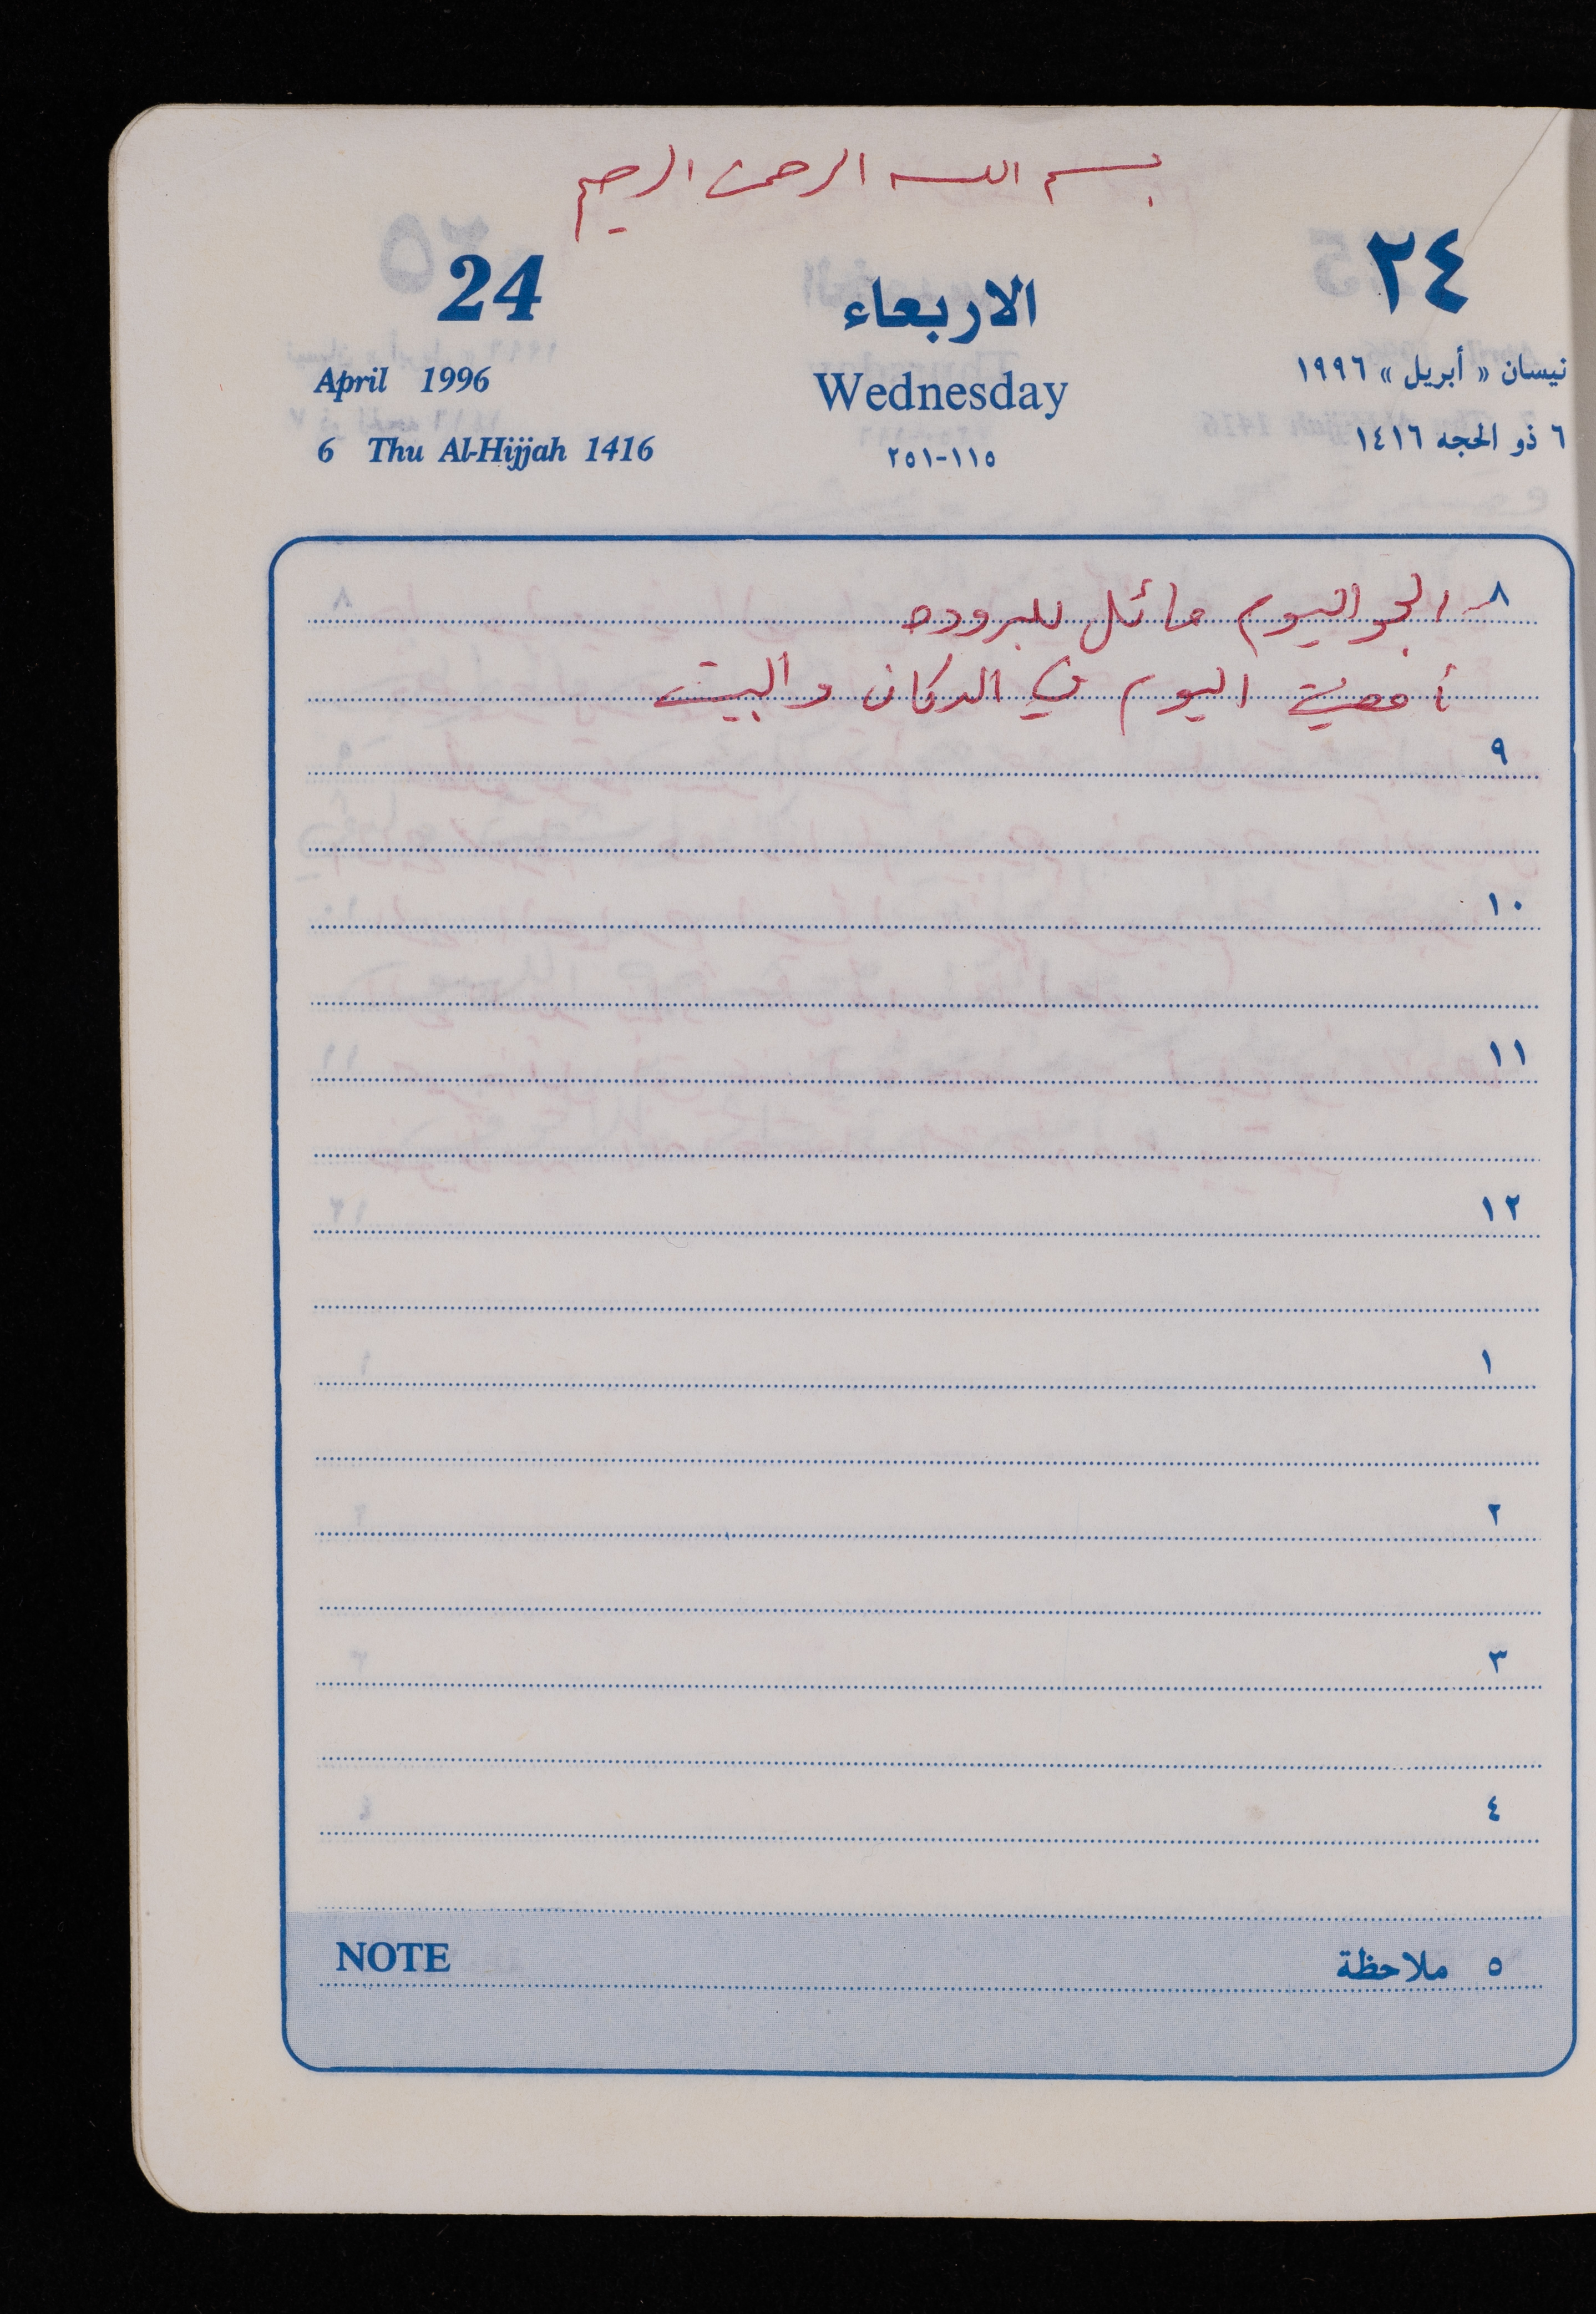 بسم الله الرحمن الرحيم
24 الاربعاء ٢٤
April 1996 Wednesday نيسان « أبريل » ١٩٩٦
6 Thu Al-Hijjah 1416 ٢٥١-١١٥ ٦ ذو الحجه ١٤١٦
٨ الجو اليوم مائل للبروده
أمضيت اليوم في الدكان والبيت
٩
١٠
١١
١٢
١
٢
٣
٤
NOTE ٥ ملاحظة